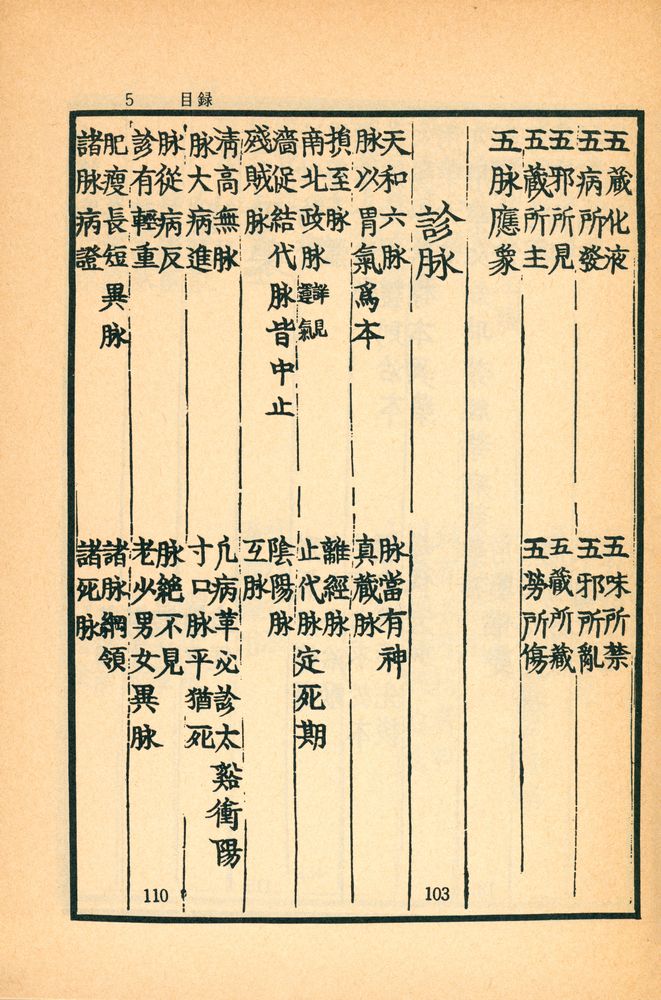 5 目録
五藏化液
五味所禁
五病所發
五邪所亂
五邪所見
五藏所藏
五藏所主
五勞所傷
五脉應象
診脉
103
天和六脉
脉當有神
脉以胃氣爲本
真藏脉
損至脉
離經脉
南北政脉 詳見運氣
止代脉定死期
濇促結代脉皆中止
陰陽脉
殘賊脉
互脉
清高無脉
凢病革必診太谿衝陽
脉大病進
寸口脉平猶死
脉從病反
脉絶不見
診有輕重
老少男女異脉
110
肥瘦長短異脉
諸脉綱領
諸脉病證
諸死脉